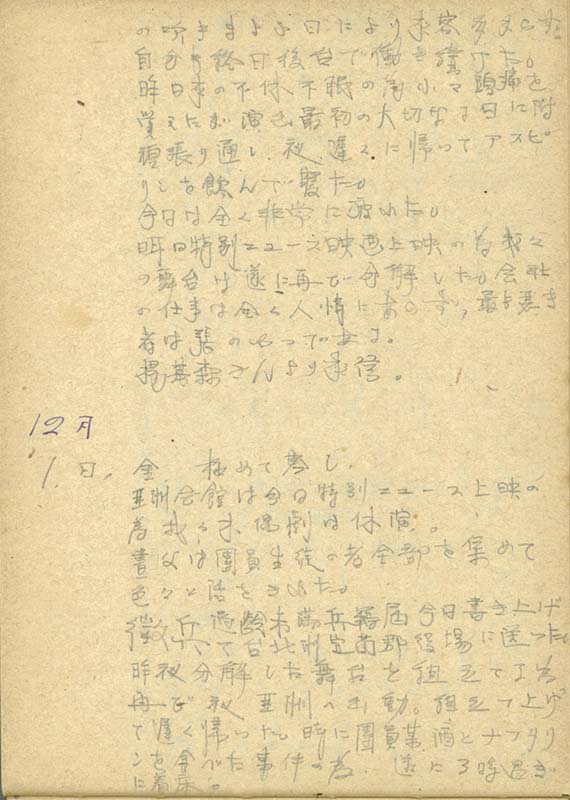 自分も終日後台で働き續けた。
昨日来の不休不眠の為小々頭痛を
覚えたが演出最初の大切なる日に附
頑張り通し、夜遅くに帰ってアスピ
リンを飲んで寝た。
今日は全く非常に疲れた。
明日特別ニュース映画上映の為我々
の舞台は遂に再び分解した。会社
の仕事は全く人情にあらず、最も悪き
者は張のやつである。
楊基森さんより来信。
12月
1日、金 極めて寒し、
亜洲会館は今日特別ニュース上映の
為我々木偶劇は休演。
晝父は團員生徒の者全部を集めて
色々と話をされた。
徴兵適齢未満兵籍届今日書き上げ
て台北州宜蘭郡役場に送った。
昨夜分解した舞台を組立てる為
再び夜亜洲へ出動。組立て上げ
て遅く帰った。時に團員某酒とナフタリ
ンを呑んだ事件の為、遂に3時過ぎ
に着床。